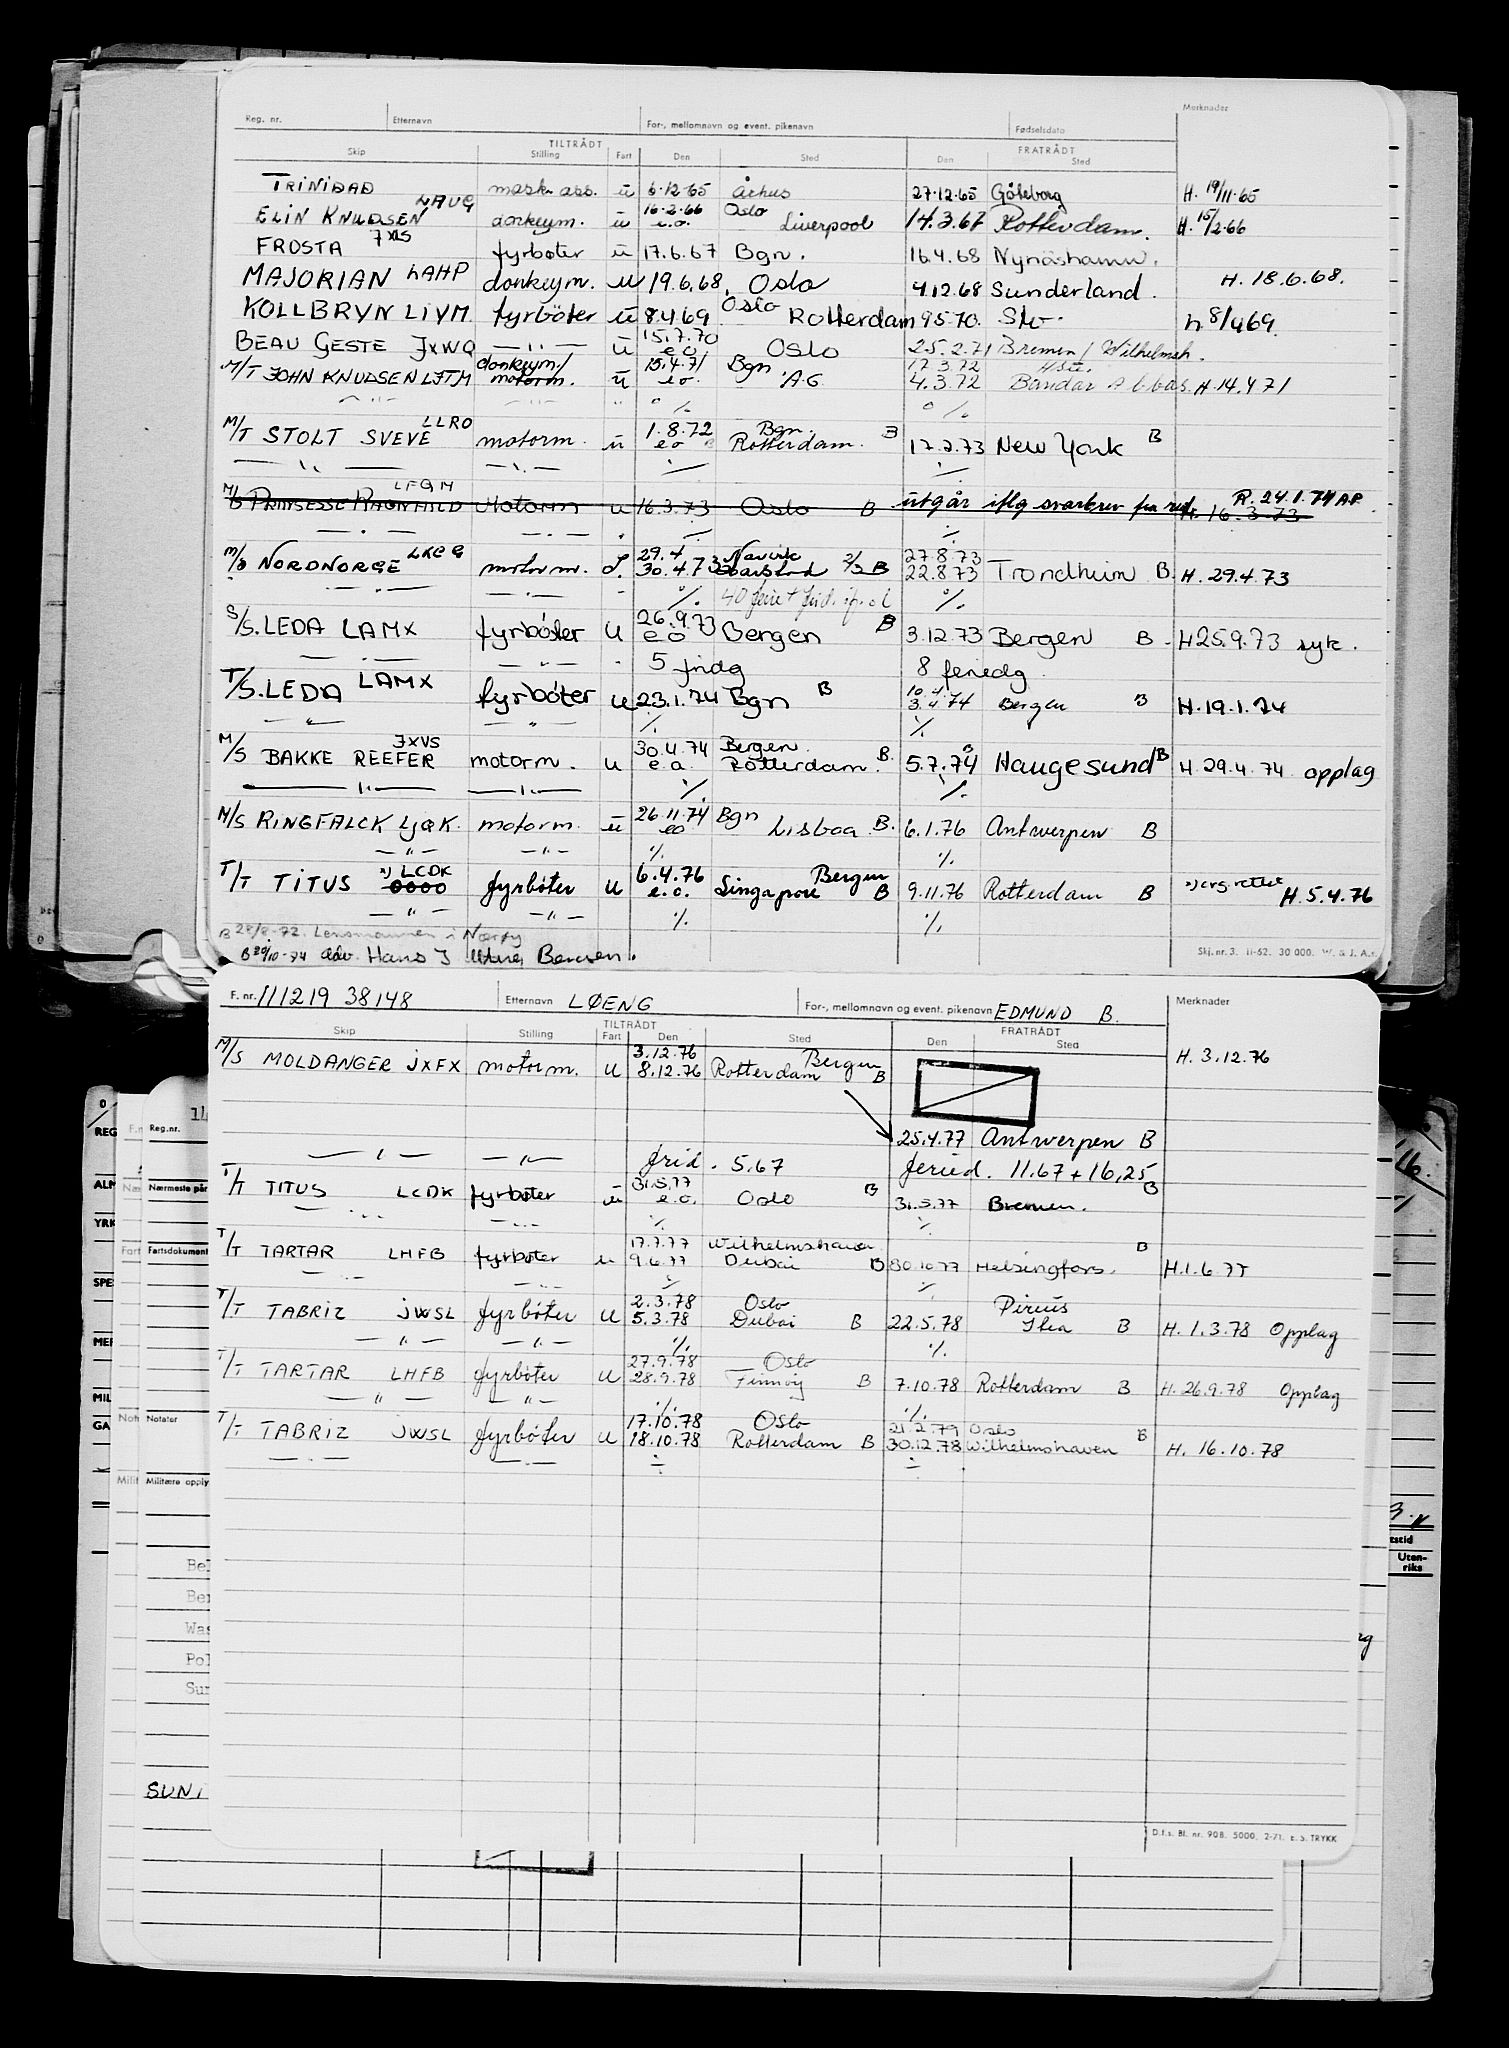 Reg. nr. Etternavn For-, mellomnavn og event. pikenavn Fødselsdato Merknader
TILTRÅDT FRATRÅDT
Skip Stilling Fart Den Sted Den Sted
TRINIDAD mask. ass. u 6.12.65 Århus 27.12.65 Göteborg H. 19/11.65
LAUG 16.2.66 Oslo
ELIN KNUDSEN donkeym. u e.o. Liverpool 14.3.67 Rotterdam. H. 15/2.66
FROSTA fyrbøter u 17.6.67 Bgn. 16.4.68 Nynäshamn.
MAJORIAN LAHP donkeym. u 19.6.68. Oslo 4.12.68 Sunderland. H. 18.6.68.
KOLLBRYN LIVM fyrbøter u 8.4.69 Oslo Rotterdam 9.5.70. Sto. h 8/4 69.
15.7.70
BEAU GESTE JXWQ — " — u e.o OSLO 25.2.71 Bremen / Wilhelmsh.
donkeym/ 15.4.71 Bgn 17.3.72
M/T JOHN KNUDSEN LJTM motorm. u e.o. A.G. 4.3.72 Bandar Abbas. H. 14.4 71
— " — — " — " % %
LLRO 1.8.72 Bgn.
M/T STOLT SVEVE motorm. u e.o Rotterdam. B 17.2.73 New York B
— " — — " — % %
LFQM R. 24.1.74 AP
M/S PRINSESSE RAGNHILD Motorm u 16.3.73 Oslo B utgår iflg svarbrev fra red. H. 16.3.73
— " — — " — % %
LKCG 29.4 Narvik 27.8.73
M/S NORDNORGE motorm. 30.4.73 Harstad B 22.8.73 Trondheim B. H. 29.4.73
— " — — " — % %
26.9.73
S/S. LEDA LAMX fyrbøter u e.o Bergen B 3.12.73 Bergen B. H 25.9.73 syk.
— " — — " — 5 fridg 8 feriedg
LAMX 10.4.74
T/S. LEDA fyrbøter u 23.1.74 Bgn B 3.4.74 Bergen B H. 19.1.74
— " — — " — % %
JXVS 30.4.74 Bergen.
M/S BAKKE REEFER motorm. u e.o. Rotterdam. B. 5.7.74 Haugesund B H. 29.4.74 opplag
— " — — " — % %
M/S RINGFALCK LJQK. motorm. u 26.11.74 eo Bgn Lisboa B. 6.1.76 Antwerpen B
— " — — " — % %
x) LCDK 6.4.76 Bergen
T/T TITUS 0000 fyrbøter u e.o. Singapore B 9.11.76 Rotterdam B H. 5.4.76
— " — — " — % %
B 28/8-72. Lensmannen i Nærøy
B 20/10-74 adv. Hans J. Bensen.
Skj. nr. 3. 11-62. 30 000. W. & J. A.s.
F. nr. 111219 38148 Etternavn LØENG For-, mellomnavn og event. pikenavn EDMUND B. Merknader
TILTRÅDT FRATRÅDT
Skip Stilling Fart Den Sted Den Sted
3.12.76 Bergen H. 3.12.76
M/S MOLDANGER JXFX motorm. u 8.12.76 Rotterdam B
25.4.77 Antwerpen B
— " — — " — frid. 5.67 feried. 11.67 + 16,25
31.5.77
T/T TITUS LCDK fyrbøter u e.o. Oslo B 31.5.77 Bremen. B
— " — — " — % %
17.7.77 Wilhelmshaven
T/T TARTAR LHFB fyrbøter u 9.6.77 Dubai B 30.10.77 Helsingfors. B H. 1.6.77
— " — — " — % %
2.3.78 Oslo Pireus
T/T TABRIZ JWSL fyrbøter u 5.3.78 Dubai B 22.5.78 Itea B H. 1.3.78 Opplag
— " — — " — % %
27.9.78 Oslo
T/T TARTAR LHFB fyrbøter u 28.9.78 Finnøy B 7.10.78 Rotterdam B H. 26.9.78 Opplag
— " — — " — % %
17.10.78 Oslo 21.2.79 Oslo
T/T TABRIZ JWSL fyrbøter u 18.10.78 Rotterdam B 30.12.78 Wilhelmshaven B H. 16.10.78
— " — — " — ÷ ÷
D.f.s. Bl. nr. 90B. 5000. 2-71. E. S. TRYKK
Reg.nr.
Nærmeste
Fartsdokument
Notater
Militære
REG
YRK
SPE
MIL
GA
Uten-
riks
Bel
Ber
Was
Pol
Sur
SUNI